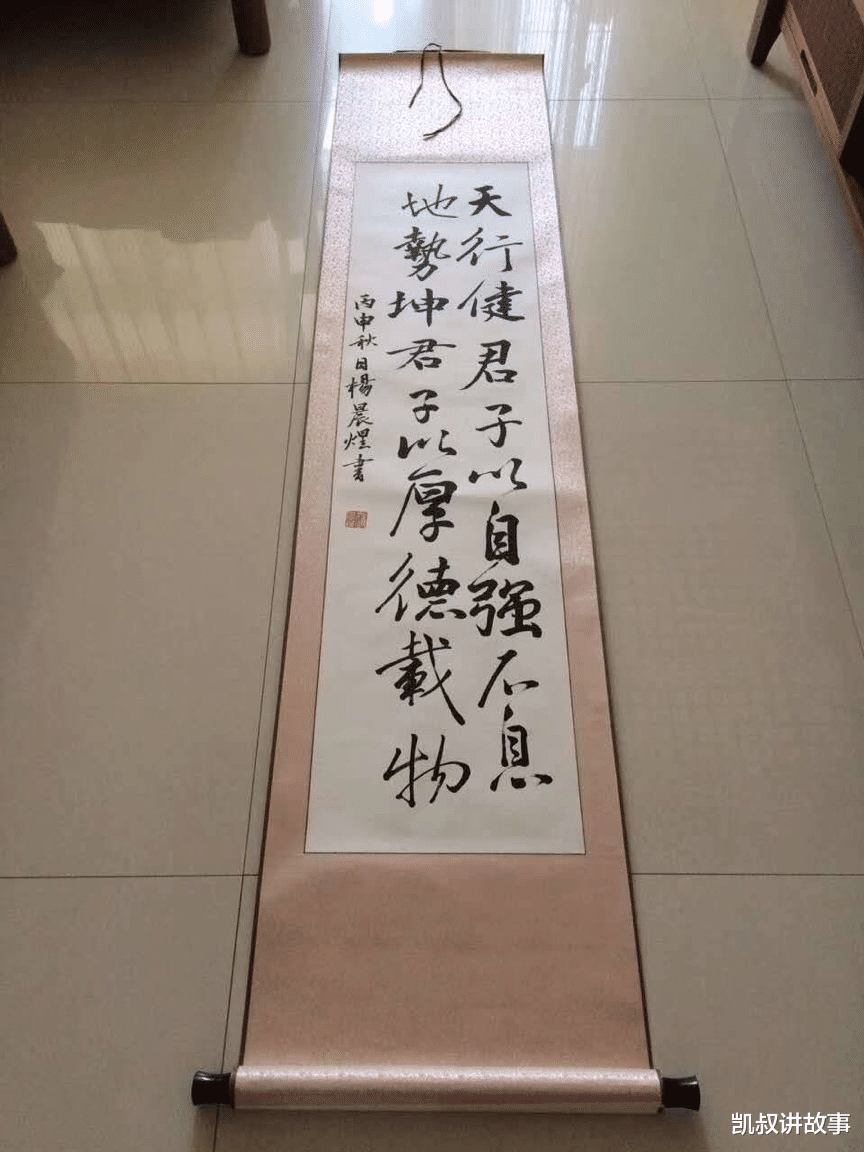 天行健君子以自強不息
地勢坤君子以厚德載物
丙申秋日楊晨煋書
凱叔讲故事